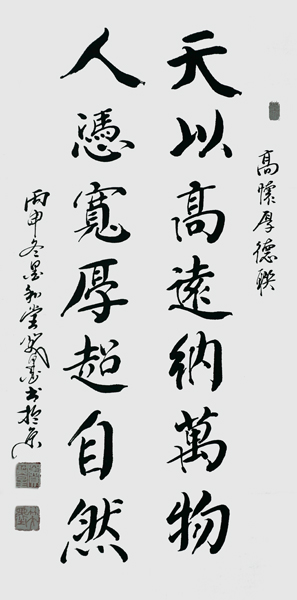 高怀厚德联
天以高遠納萬物
人憑寬厚超自然
丙申冬墨和堂
書於京